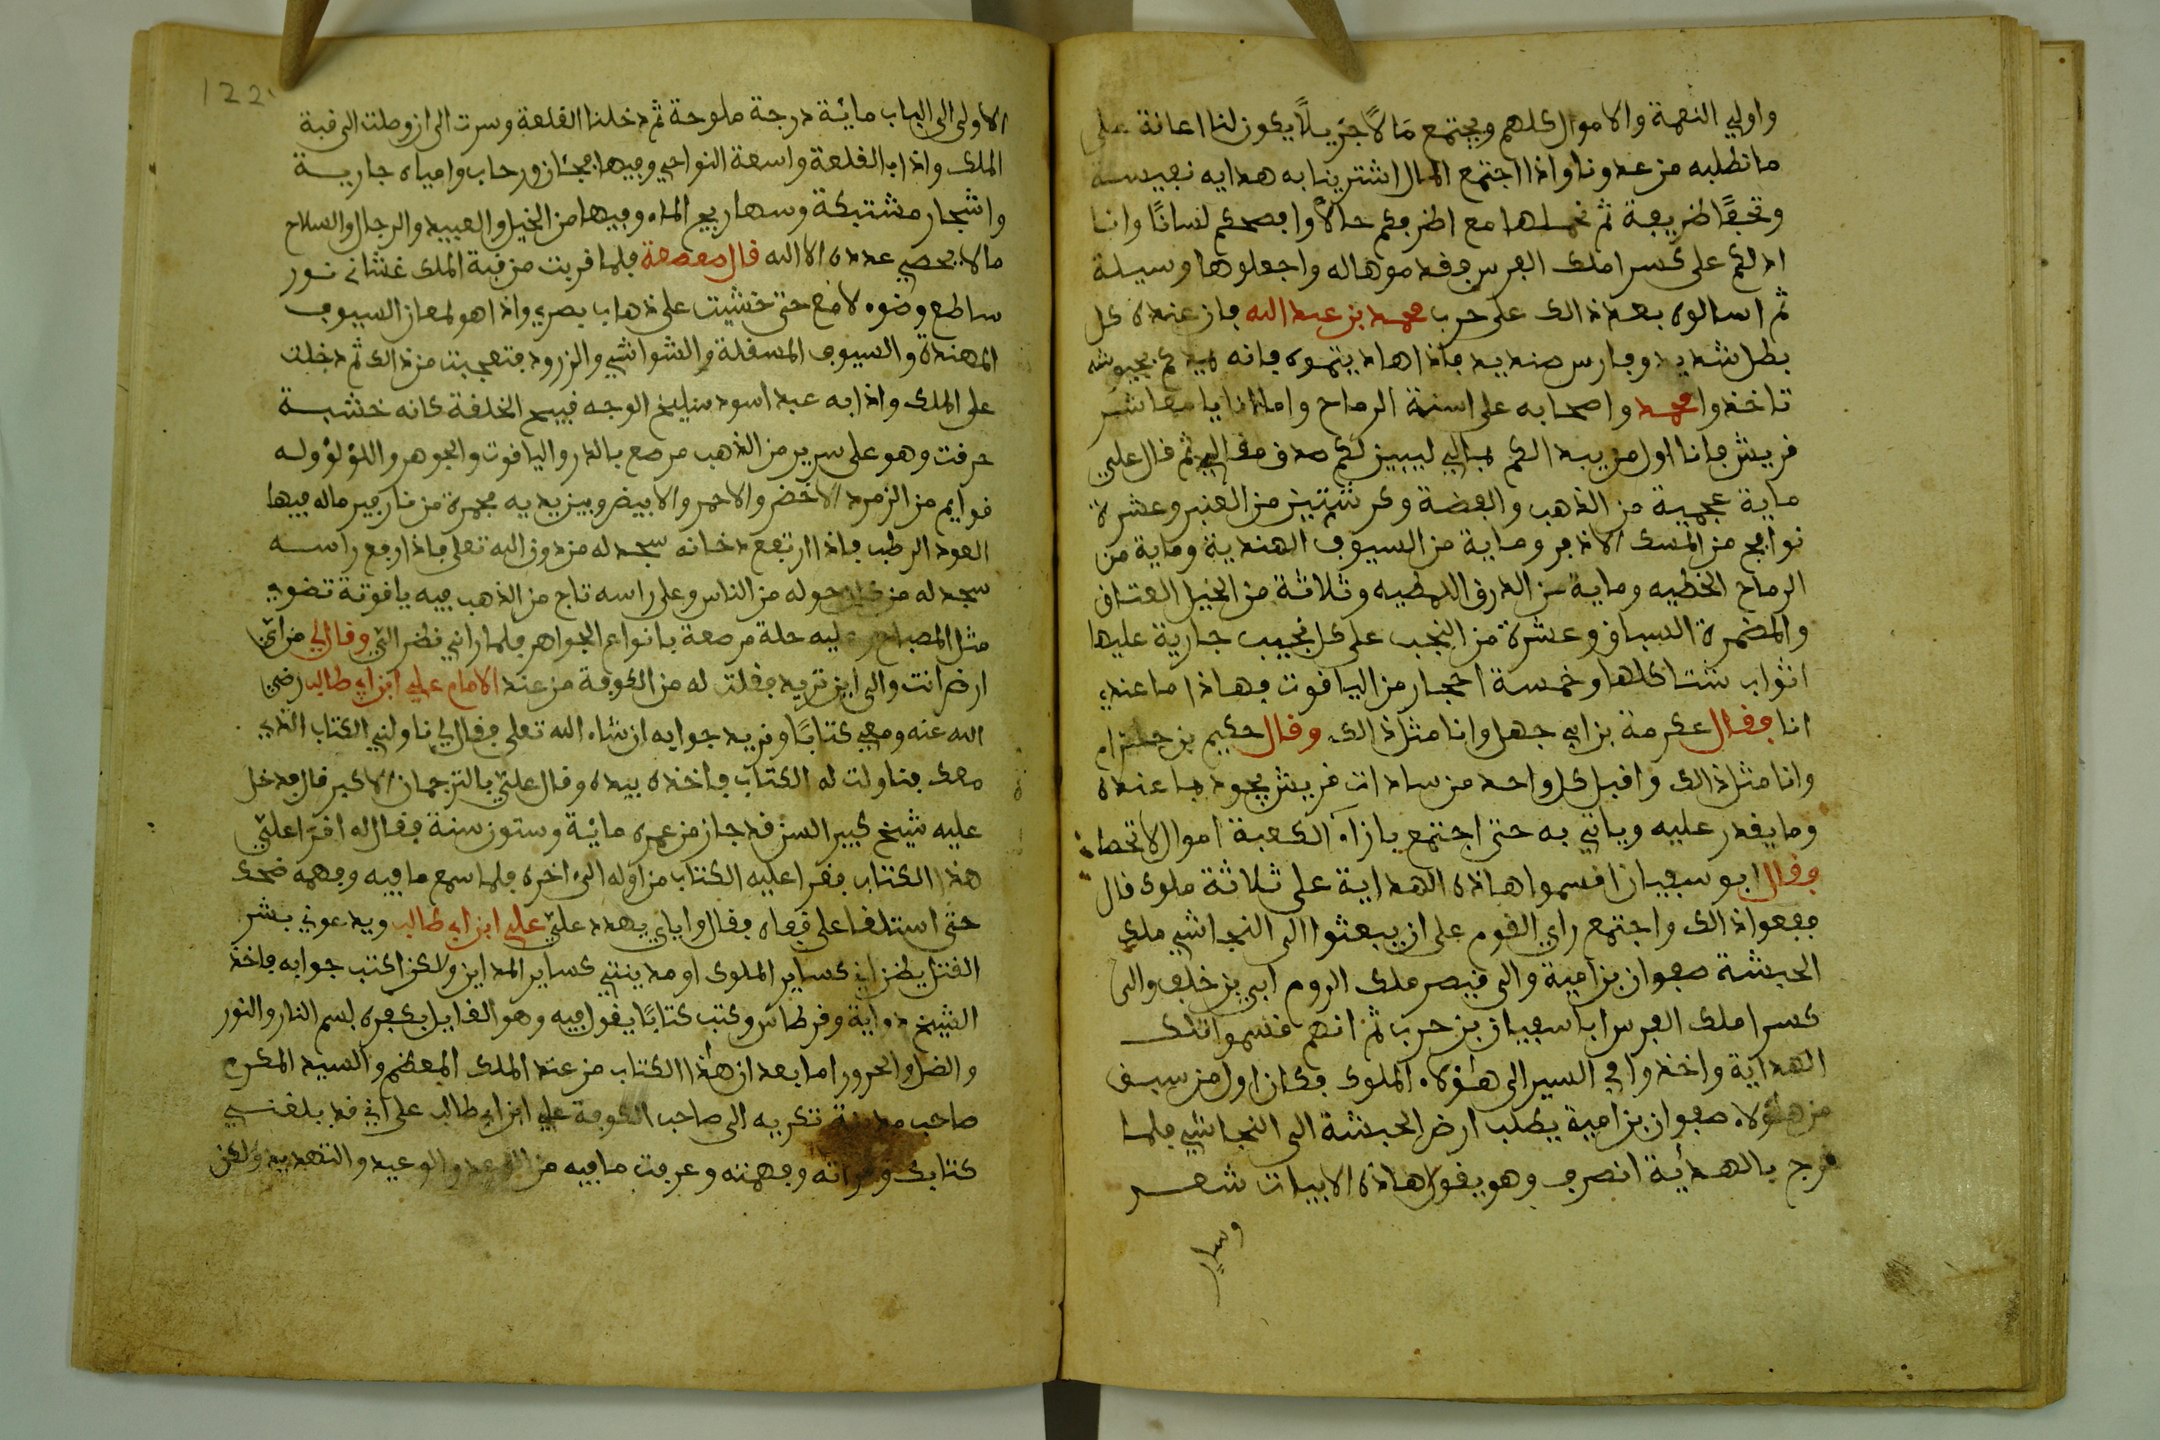 واولي النعمة والاموال كلهم ويجتمع مَالاً جزيلاً يكون لنا اعانة على
ما نطلبه من عدونا واذا اجتمع المال اشترينا به هدايه نفيسة
وتحفًا ظريفة ثم نحملها مع اظرفكم حالاً وافصحكم لسانًا وانا
ادلكم على كسرا ملك الفرس فقدموها له واجعلوها وسيلة
ثم اسالوه بعد ذالك على حرب محمد بن عبد الله فان عنده كل
بطل شديد وفارس صنديد فاذا هاديتموه فانه يمدكم بجيوشه
تاخذوا محمد واصحابه على اسنة الرماح واما انا يا معاشر
قريش فانا اول من يبدالكم بمالي ليبين لكم صدق مقالي ثم قال علي
ماية عجمية من الذهب والفضة وكرشتين من العنبر وعشرة
نوافج من المسك الاذفر وماية من السيوف الهندية وماية من
الرماح الخطيه وماية من الدرق اللمطيه وثلاثة من الخيل العتاق
والمضمرة السباق وعشرة من النجب على كل نجيب جارية عليها
اثواب شتا كلها وخمسة احجار من الياقوت فهاذا ما عندي
انا فقال عكرمة بن ابي جهل وانا مثل ذالك وقال حكيم بن حزام
وانا مثل ذالك واقبل كل واحد من سادات قريش يجود بما عنده
وما يقدر عليه وياتي به حتى اجتمع بازاء الكعبة اموال لا تحصا
وقال ابو سفيان اقسموا هاذه الهداية على ثلاثة ملوك قال
ففعوا ذالك واجتمع راي القوم على ان يبعثوا الى النجاشي ملك
الحبشة صفوان بن امية والى قيصر ملك الروم ابي بن خلف والى
كسرا ملك الفرس ابا سفيان بن حرب ثم انهم قسموا تلك
الهداية واخذوا في السير الى هؤلاء الملوك فكان اول من سبق
من هؤلاء صفوان بن امية يطلب ارض الحبشة الى النجاشي فلما
خرج بالهدئية انصرف وهو يقول هاذه الابيات شعر
وسار
122
الاولى الى الباب مائة درجة ملوحة ثم دخلنا القلعة وسرت الى ان وصلت الى قبة
الملك واذا بالقلعة واسعة النواحي وفيها مجان ورحاب وامياه جارية
واشجار مشتبكة وسهاريج الماء وفيها من الخيل والعبيد والرجال والسلاح
مالا يحصي عدده الا الله قال صعصعة فلما قربت من قبة الملك غشاني نور
ساطع وضوء لامع حتى خشيت على ذهاب بصري واذا هو لمعان السيوف
المهندة والسيوف المسقلة والشواشي والزرود فتعجبت من ذالك ثم دخلت
على الملك واذا به عبد اسود سليخ الوجه قبيح الخلقة كانه خشبة
حرقت وهو على سرير من الذهب مرصع بالدر والياقوت والجوهر واللؤلؤ وله
قوايم من الزمرد الاخضر والاحمر والابيض وبين يديه مجمرة من نار يرماله فيها
العود الرطب فاذا ارتفع دخانه سجد له من دون الله تعلى فاذا رفع راسه
سجد له من كان حوله من الناس وعلى راسه تاج من الذهب فيه ياقوتة تضوي
مثل المصباح وعليه حلة مرصعة بانواع الجواهر فلما راني نظر الَيّ وقال لي من اي
ارض انت والى اين تريد فقلت له من الكوفة من عند الامام علي ابن ابي طالب رضي
الله عنه ومعي كتابًا ونريد جوابه ان شاء الله تعلى فقال لي ناولني الكتاب الذي
معك فناولت له الكتاب فاخذه بيده وقال عليّ بالترجمان الاكبر قال فدخل
عليه شيخ كبير السن قد جاز من عمره مائة وستون سنة فقال له اقرا عليّ
هذا الكتاب فقرا عليه الكتاب من اوله الى اخره فلما سمع ما فيه وفهمه ضحك
حتى استلقا على قفاه فقال واياي يهدد عليّ علي ابن ابي طالب ويدعوني بشر
القتل يظن اني كساير الملوك او مدينتي كساير المداين ولاكن اكتب جوابه فاخذ
الشيخ دواية وقرطاس وكتب كتابًا يقول فيه وهو القايل بكفره بسم النار والنور
والضل والحرور اما بعد ان هذا الكتاب من عند الملك المعظم والسيد المكرم
صاحب مدينة تكريه الى صاحب الكوفة علي ابن ابي طالب على اني قد بلغني
كتابك وقراته وفهمته وعرفت ما فيه من الوعد والوعيد والتهديد ولكن